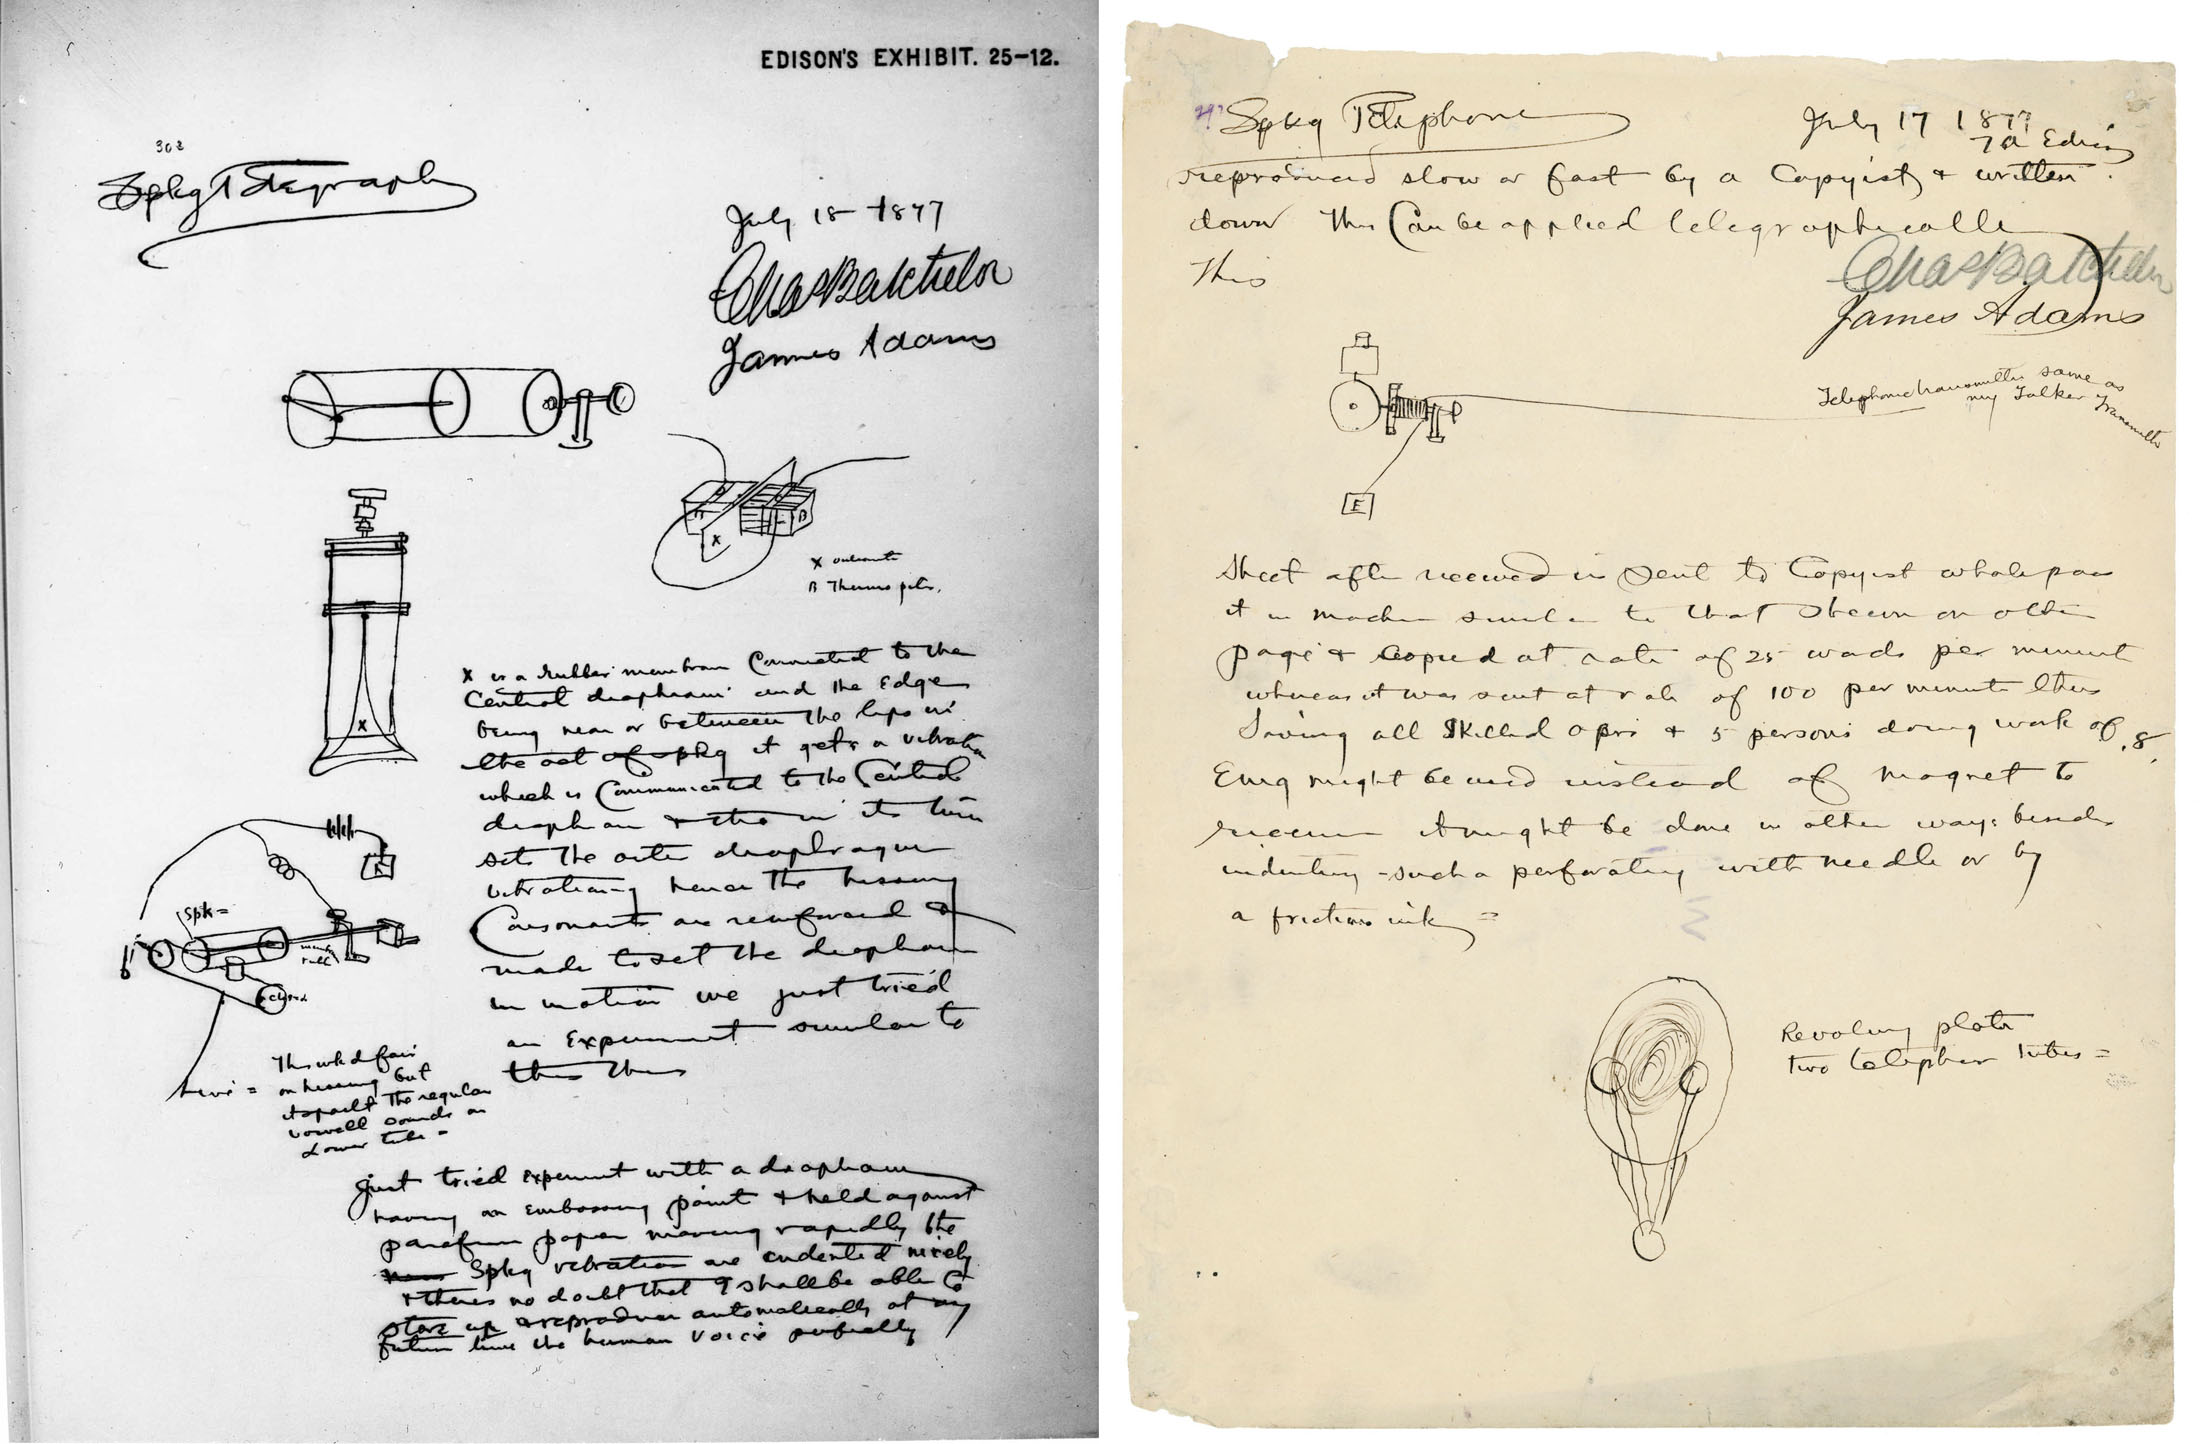 EDISON'S EXHIBIT. 25-12.
302
Spkg Telegraph
July 18 1877
Chas Batchelor
James Adams
X
B
X
B Thermo pile.
X
X is a rubber membrane connected to the
Central diaphram and the Edge
being near or between the lips in
the act of spkg it gets a vibration
which is Communicated to the Central
diaphram & this in its turn
sets the outer diaphragm
vibrating hence the hissing
Consonants are reinforced &
made to set the diaphram
in motion we just tried
an Experiment similar to
this
spk =
This wkd fair
on hissing but
it spoilt the regular
vowell sounds on
Lower tube =
Just tried experiment with a diaphram
having an embossing point & held against
parafin paper moving rapidly the
Spkg vibrations are indented nicely
& theres no doubt that I shall be able to
store up & reproduce automatically at any
future time the human voice perfectly
Spkg Telephone
July 17 1877
T A Edison
reproduced slow or fast by a Copyist & written
down This Can be applied telegraphically
This
Chas Batchelor
James Adams
Telephone transmitter same as
my Talker Transmitter
E
Sheet after received is sent to Copyist who
it in machine similar to that shewn on other
page & copied at rate of 25 words per minute
whereas it was sent at rate of 100 per minute thus
Saving all Skilled oprs & 5 persons doing work of 8.
Emg might be used instead of magnet to
receive It might be done in other ways besides
indenting - such a perforating with needle or by
a friction ink =
Revolving plate
two telephone tubes =